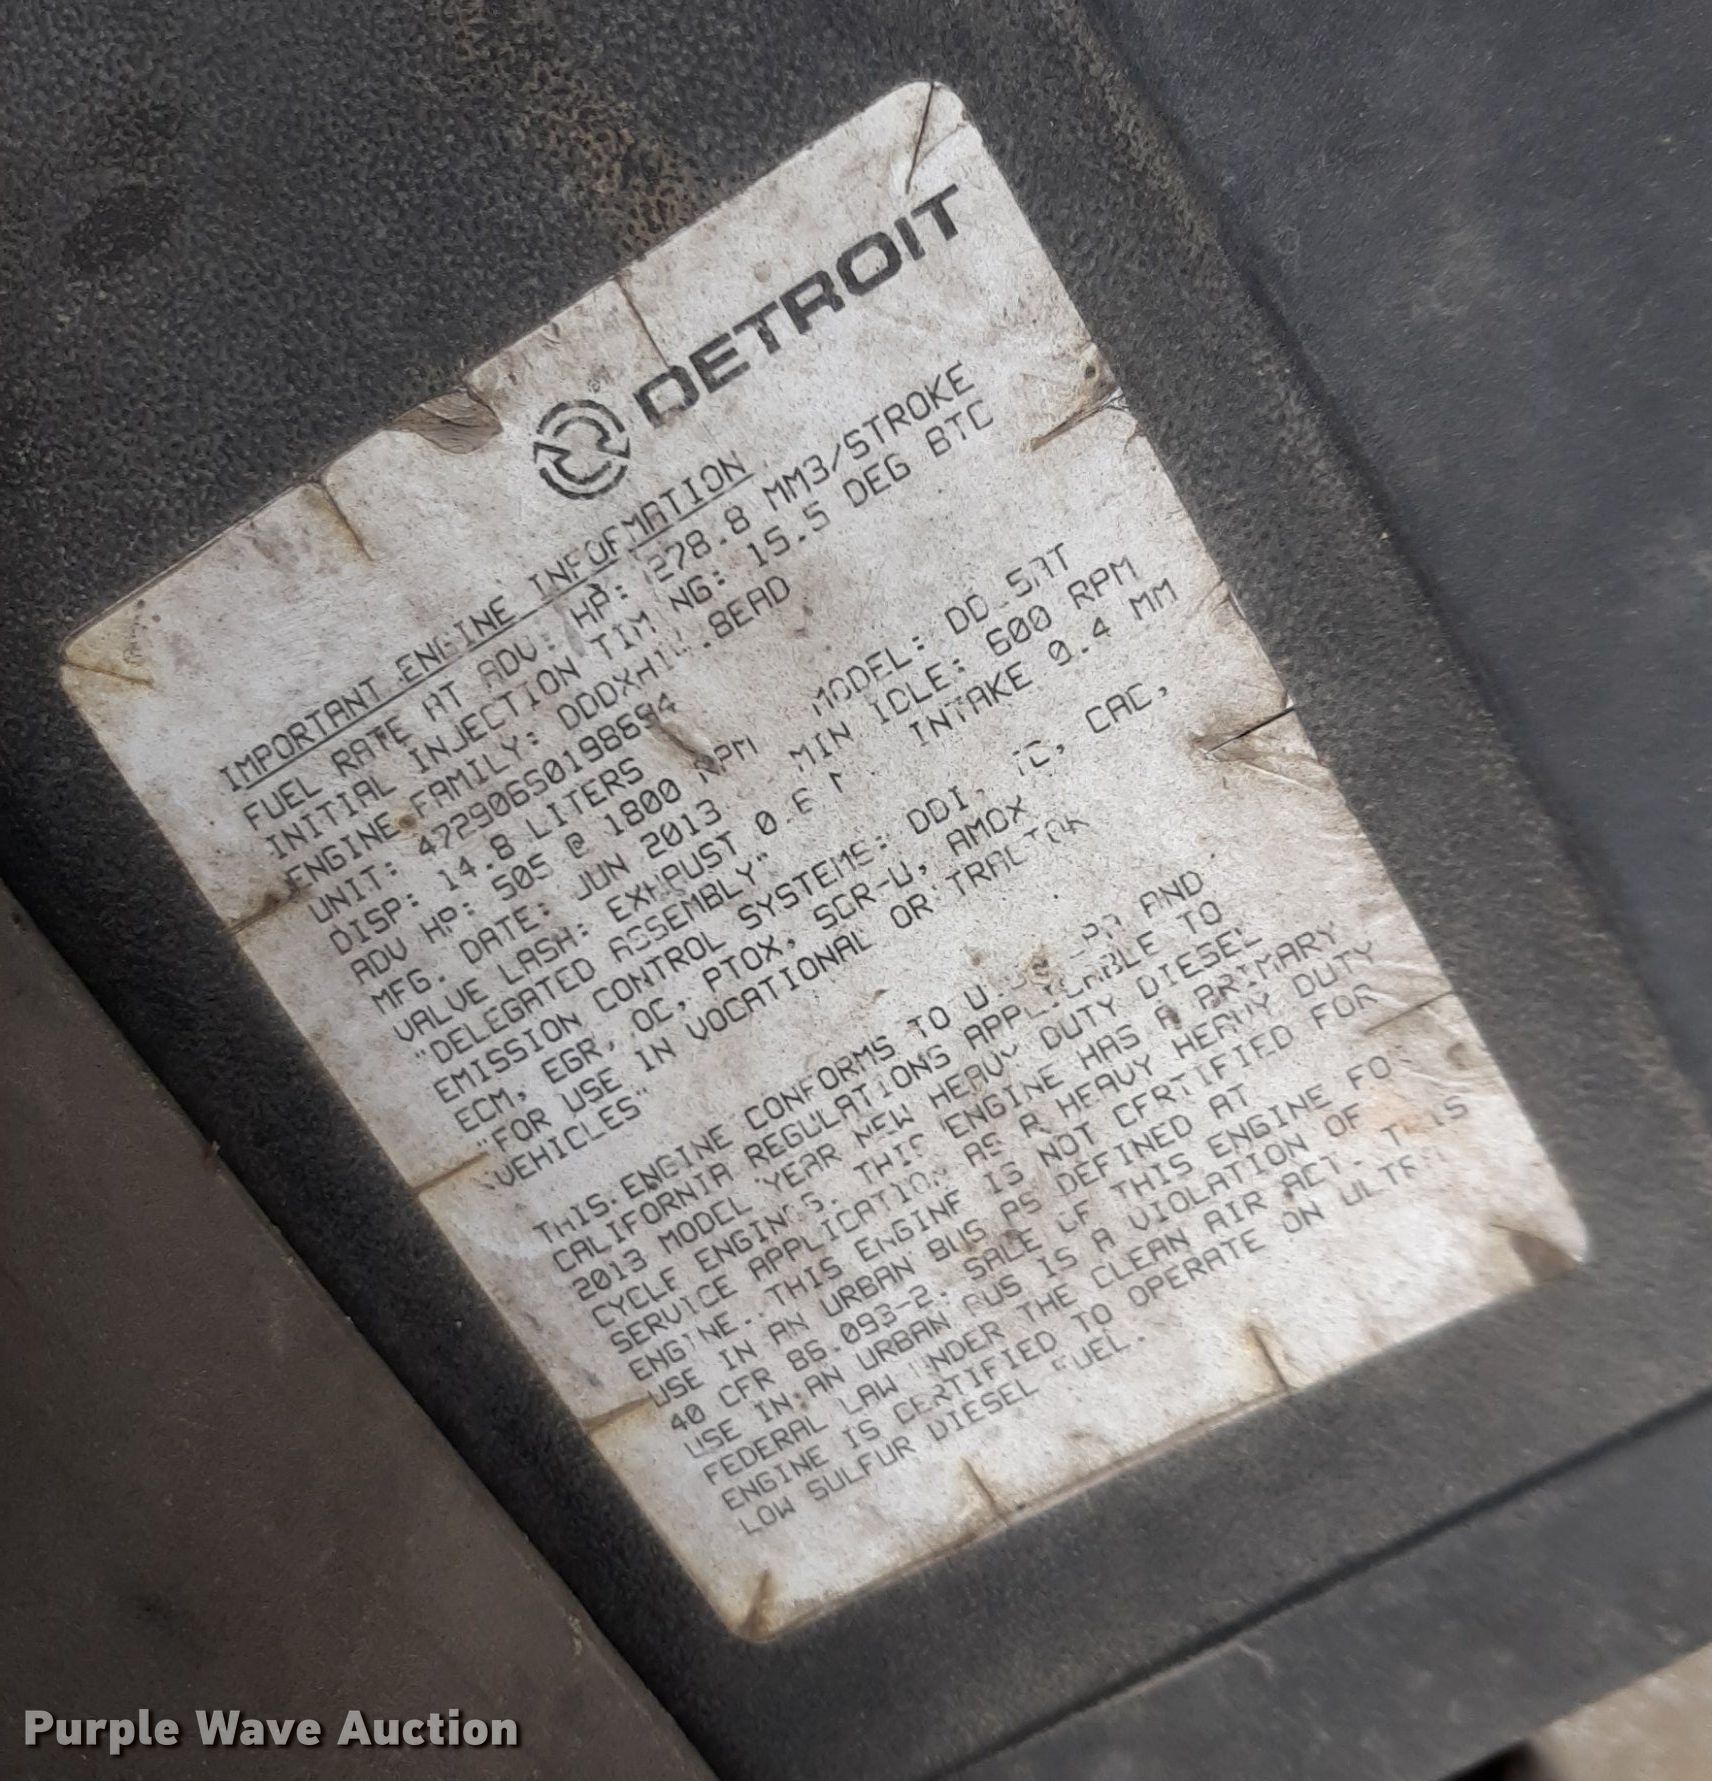 DETROIT
IMPORTANT ENGINE INFORMATION
FUEL RATE AT ADV. HP: 278.8 MM3/STROKE
INITIAL INJECTION TIMING: 15.5 DEG BTC
ENGINE FAMILY: DDDXH14.8EAD
UNIT: 472906S0198694
DISP: 14.8 LITERS MODEL:
ADV HP: 505 @ 1800 RPM MIN IDLE: 600 RPM
MFG. DATE: JUN 2013
VALVE LASH: EXHAUST INTAKE 0.4 MM
"DELEGATED ASSEMBLY"
EMISSION CONTROL SYSTEMS: DDI, TC, CAC,
ECM, EGR, OC, PTOX, SCR-U, AMOX
"FOR USE IN VOCATIONAL OR TRACTOR
VEHICLES"
THIS ENGINE CONFORMS TO U.S. EPA AND
CALIFORNIA REGULATIONS APPLICABLE TO
2013 MODEL YEAR NEW HEAVY DUTY DIESEL
CYCLE ENGINES. THIS ENGINE HAS A PRIMARY
SERVICE APPLICATION AS A HEAVY HEAVY DUTY
ENGINE. THIS ENGINE IS NOT CERTIFIED FOR
USE IN AN URBAN BUS AS DEFINED AT
40 CFR 86.093-2. SALE OF THIS ENGINE FOR
USE IN AN URBAN BUS IS A VIOLATION OF
FEDERAL LAW UNDER THE CLEAN AIR ACT. THIS
ENGINE IS CERTIFIED TO OPERATE ON ULTRA
LOW SULFUR DIESEL FUEL.
Purple Wave Auction